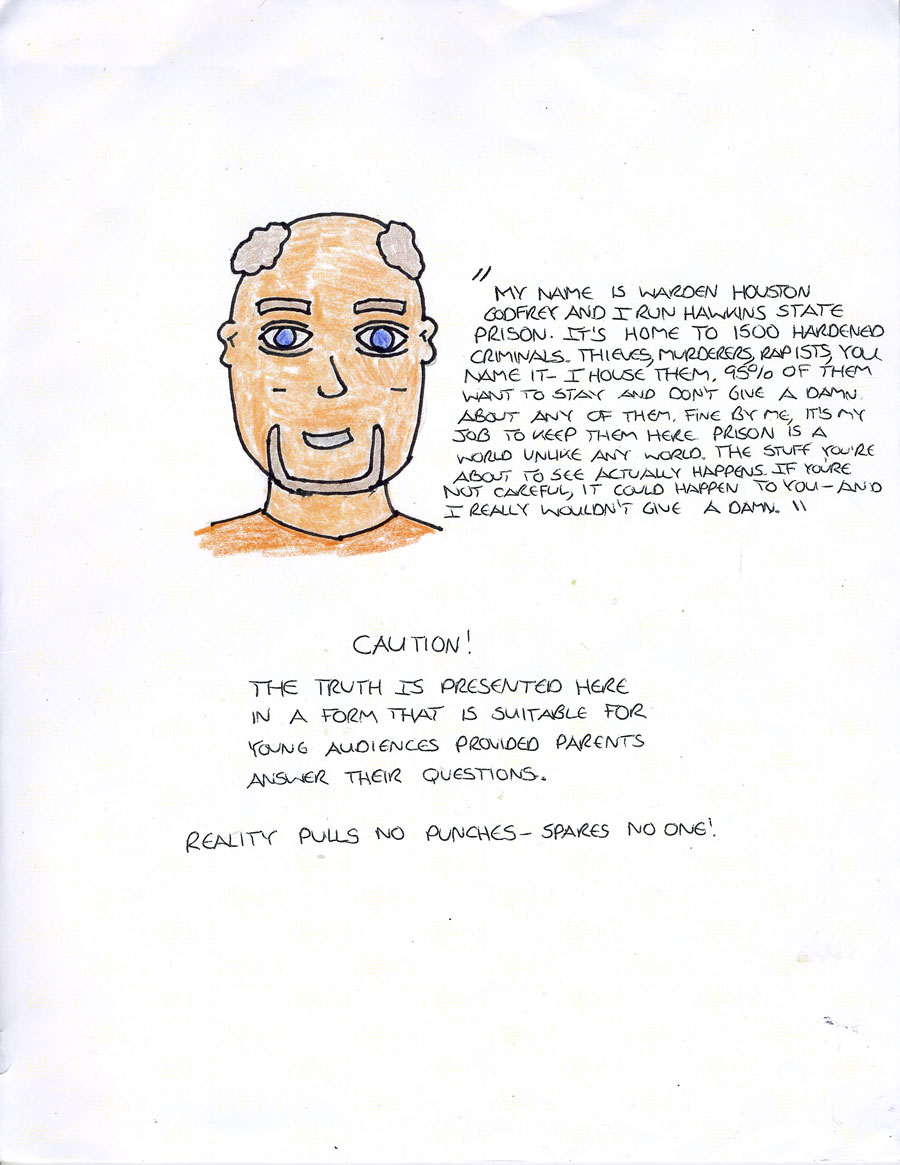 "
MY NAME IS WARDEN HOUSTON
GODFREY AND I RUN HAWKINS STATE
PRISON. IT'S HOME TO 1500 HARDENED
CRIMINALS. THIEVES, MURDERERS, RAPISTS, YOU
NAME IT- I HOUSE THEM. 95% OF THEM
WANT TO STAY AND DON'T GIVE A DAMN
ABOUT ANY OF THEM. FINE BY ME, IT'S MY
JOB TO KEEP THEM HERE. PRISON IS A
WORLD UNLIKE ANY WORLD. THE STUFF YOU'RE
ABOUT TO SEE ACTUALLY HAPPENS. IF YOU'RE
NOT CAREFUL, IT COULD HAPPEN TO YOU-AND
I REALLY WOULDN'T GIVE A DAMN. "
CAUTION!
THE TRUTH IS PRESENTED HERE
IN A FORM THAT IS SUITABLE FOR
YOUNG AUDIENCES PROVIDED PARENTS
ANSWER THEIR QUESTIONS.
REALITY PULLS NO PUNCHES-SPARES NO ONE!